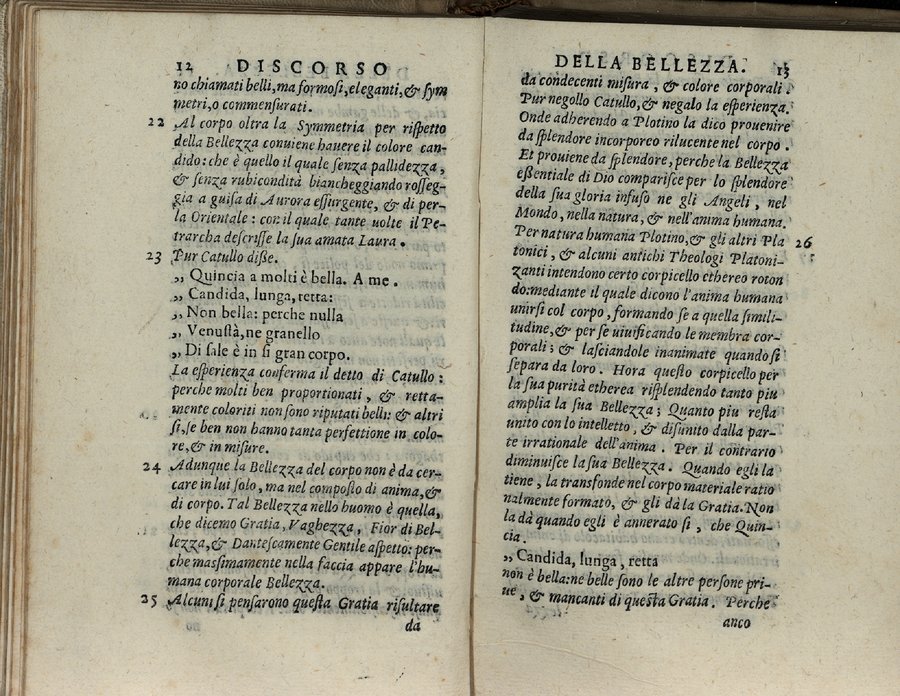 12 DISCORSO
no chiamati belli, ma formosi, eleganti, & sym
metri, o commensurati.
22 Al corpo oltra la Symmetria per rispetto
della Bellezza conuiene hauere il colore can-
dido: che è quello il quale senza pallidezza,
& senza rubicondità biancheggiando rosseg-
gia a guisa di Aurora essurgente, & di per-
la Orientale: con il quale tante uolte il Pe-
trarcha descrisse la sua amata Laura.
23 Pur Catullo disse.
„ Quincia a molti è bella. A me.
„ Candida, lunga, retta:
„ Non bella: perche nulla
„ Venustà, ne granello
„ Di sale è in si gran corpo.
La esperienza conferma il detto di Catullo:
perche molti ben proportionati, & retta-
mente coloriti non sono riputati belli: & altri
si, se ben non hanno tanta perfettione in colo-
re, & in misure.
24 Adunque la Bellezza del corpo non è da cer-
care in lui solo, ma nel composto di anima, &
di corpo. Tal Bellezza nello huomo è quella,
che dicemo Gratia, Vaghezza, Fior di Bel-
lezza, & Dantescamente Gentile aspetto: per-
che massimamente nella faccia appare l'hu-
mana corporale Bellezza.
25 Alcuni si pensarono questa Gratia risultare
da
DELLA BELLEZZA. 13
da condecenti misura, & colore corporali.
Pur negollo Catullo, & negalo la esperienza.
Onde adherendo a Plotino la dico prouenire
da splendore incorporeo rilucente nel corpo.
Et prouiene da splendore, perche la Bellezza
essentiale di Dio comparisce per lo splendore
della sua gloria infuso ne gli Angeli, nel
Mondo, nella natura, & nell'anima humana.
Per natura humana Plotino, & gli altri Pla 26
tonici, & alcuni antichi Theologi Platoni-
zanti intendono certo corpicello ethereo roton
do: mediante il quale dicono l'anima humana
unirsi col corpo, formando se a quella simili-
tudine, & per se uiuificando le membra cor-
porali; & lasciandole inanimate quando si
separa da loro. Hora questo corpicello per
la sua purità etherea risplendendo tanto piu
amplia la sua Bellezza; Quanto piu resta
unito con lo intelletto, & disunito dalla par-
te irrationale dell'anima. Per il contrario
diminuisce la sua Bellezza. Quando egli la
tiene, la transfonde nel corpo materiale ratio
nalmente formato, & gli dà la Gratia. Non
la dà quando egli è annerato si, che Quin-
cia.
„ Candida, lunga, retta
non è bella: ne belle sono le altre persone pri-
ue, & mancanti di questa Gratia. Perche
anco